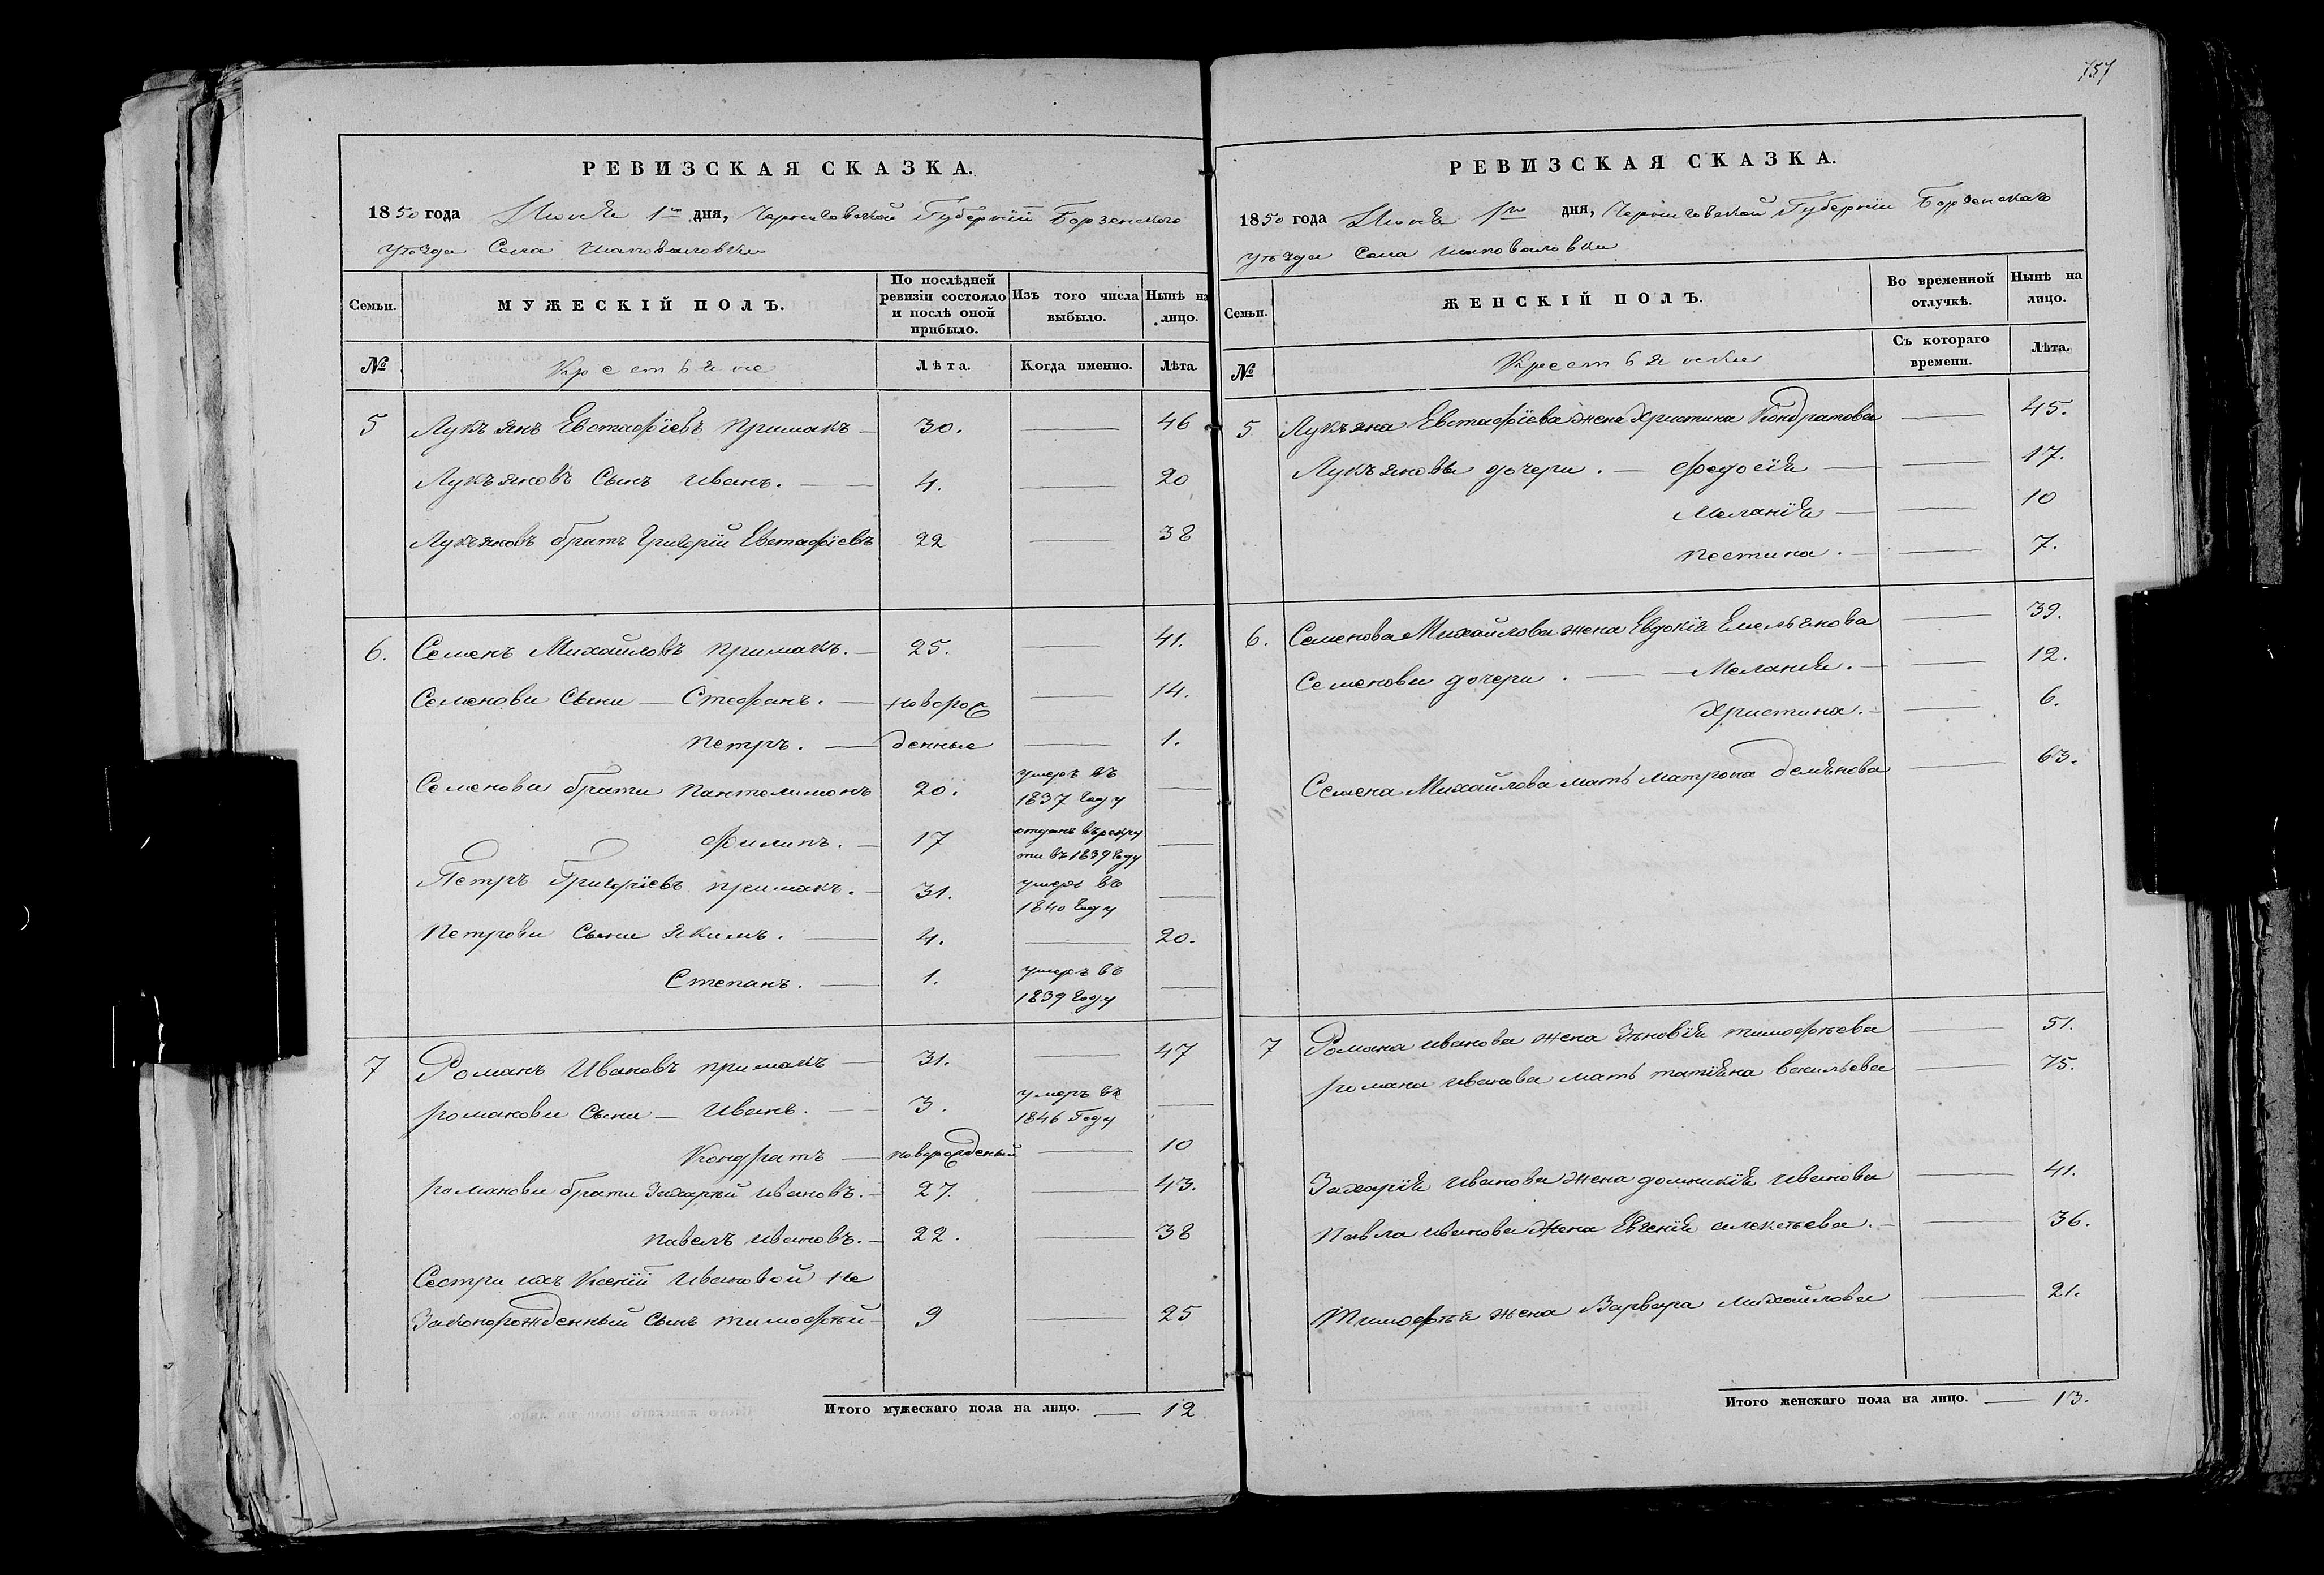 РЕВИЗСКАЯ СКАЗКА.
1850 года Июня 1го дня, Черниговской Губерніи Борзенского
уѣзда Села Шаповаловки
Семьи.
МУЖЕСКІЙ ПОЛЪ.
По послѣдней
ревизіи состояло
и послѣ оной
прибыло.
Изъ того числа
выбыло.
Нынѣ на
лицо.
№
Крестьяне
Лѣта.
Когда именно.
Лѣта.
5 Лукъянъ Евстафіевъ Примакъ — 30. — 46
Лукъяновъ Сынъ Иванъ. — 4. — 20
Лукъяновъ братъ Григорій Евстафіевъ 22 — 38
6. Семенъ Михайловъ Примакъ. — 25. — 41.
Семенови Сыни — Стефанъ. — новорож — 14.
Петръ. — денные — 1.
Семенови брати Пантелимонъ 20. умеръ въ 1837 году —
Филипъ. — 17 отданъ върекру ти въ 1839 году —
Петръ Григоріевъ Примакъ. — 31. умеръ въ 1840 году —
Петрови Сыни Якимъ. — 4. — 20.
Степанъ. — 1. умеръ въ 1839 году —
7 Романъ Ивановъ Примакъ — 31. — 47
Романови Сыни — Иванъ. — 3. умеръ въ 1846 Году —
Кондратъ — новорожденый — 10
Романови брати Захарій Ивановъ. — 27. — 43.
Павелъ Ивановъ. — 22. — 38
Сестри ихъ Ксеніи Ивановой не
Законорожденный Сынъ Тимофѣй — 9 — 25
Итого мужескаго пола на лицо. — 12
757
РЕВИЗСКАЯ СКАЗКА.
1850 года Июня 1го дня, Черниговской Губерніи Борзенскаго
уѣзда Села Шаповаловки
Семьи.
ЖЕНСКІЙ ПОЛЪ.
Во временной
отлучкѣ.
Нынѣ на
лицо.
№
Крестьянки
Съ котораго
времени.
Лѣта.
5 Лукъяна Евстафіева жена Христина Кондратова — 45.
Лукъяновы дочери. — Федосія — 17.
Меланія — 10
Пестина. — 7.
6. Семенова Михайлова жена Евдокія Емельянова — 39.
Семенови дочери. — Меланія. — 12.
Христина. — 6.
Семена Михайлова мать Матрона Демьянова — 63.
7 Романа Иванова жена Зѣновія Тимофѣева — 51.
Романа Иванова мать Татіяна Васильева — 75.
Захарія Иванова жена Домникія Иванова — 41.
Павла Иванова жена Евгенія Алексѣева. — 36.
Тимофѣя жена Варвара Михайлова — 21.
Итого женскаго пола на лицо. — 13.